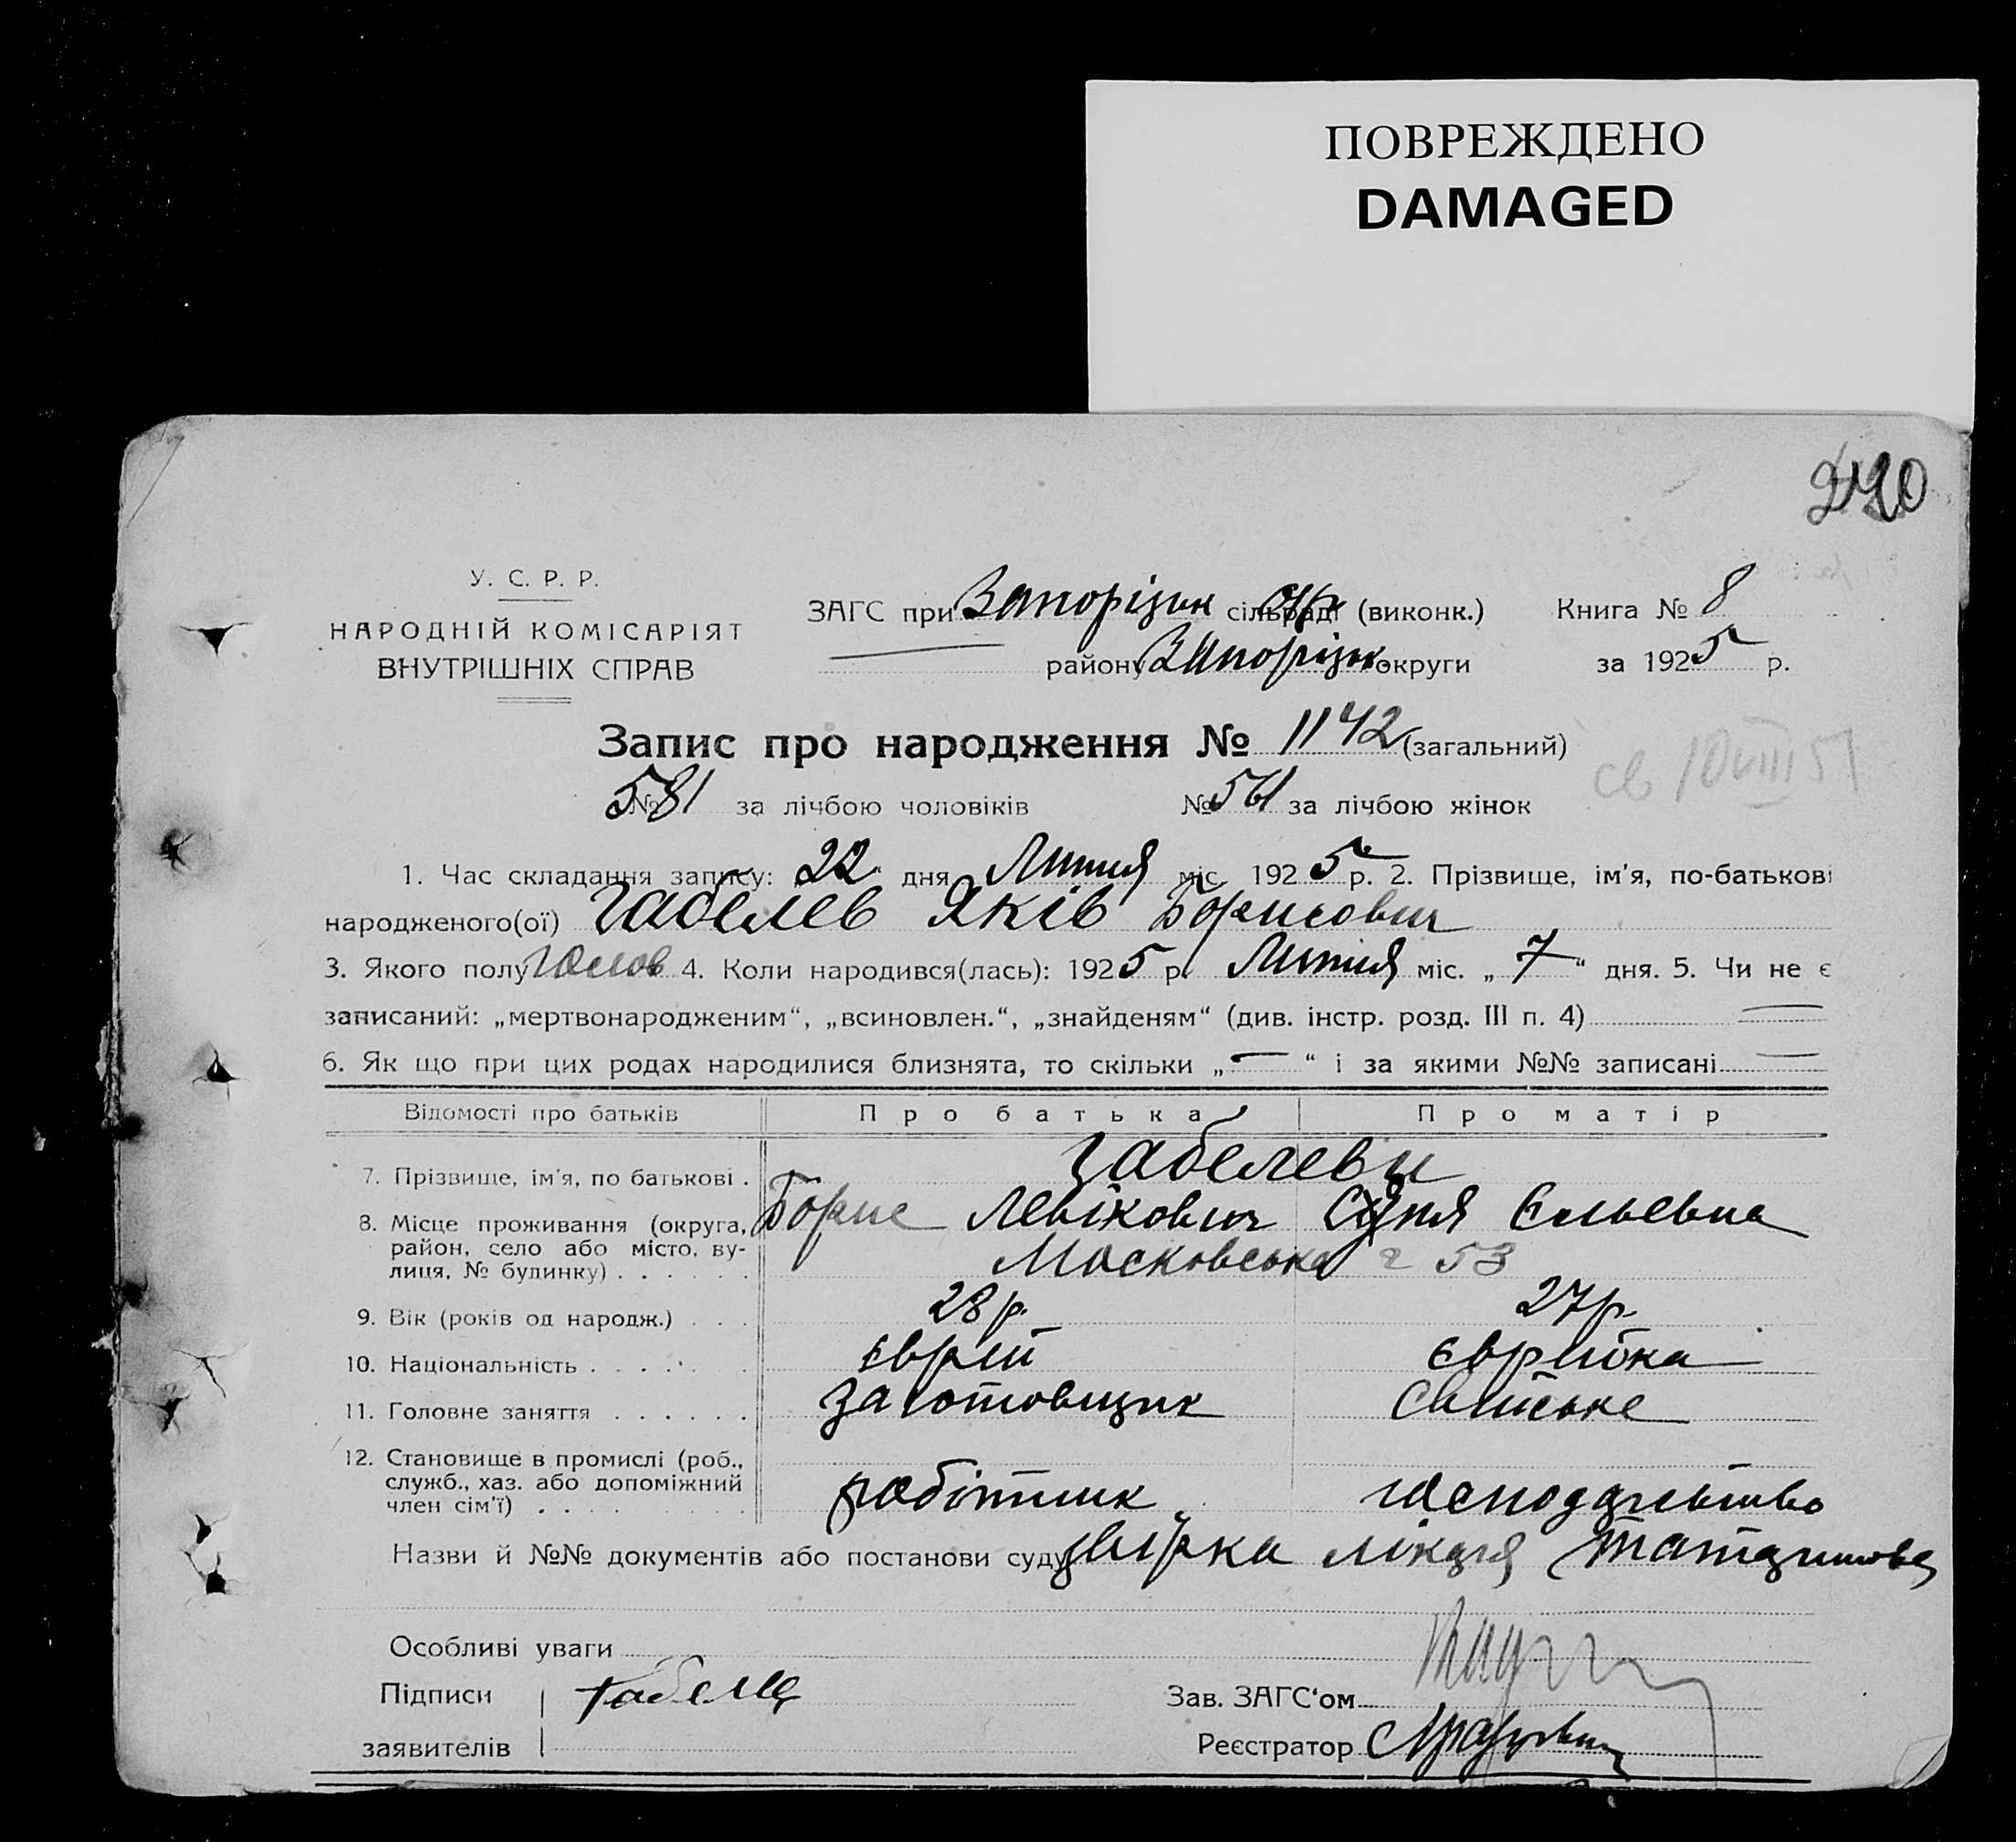 ПОВРЕЖДЕНО
DAMAGED
У. С. Р. Р.
НАРОДНІЙ КОМІСАРІЯТ
ВНУТРІШНІХ СПРАВ
ЗАГС при Запорізьк сільраді (виконк.) Книга № 8
району Запорізьк округи за 1925 р.
Запис про народження № 1142 (загальний)
№ 581 за лічбою чоловіків № 561 за лічбою жінок
1. Час складання запису: 22 дня Липня міс. 1925 р. 2. Прізвище, ім'я, по-батькові
народженого(ої) Габелев Яків Борисович
3. Якого полу чолов 4. Коли народився(лась): 1925 р. Липня міс. „7“ дня. 5. Чи не є
записаний: „мертвонародженим“, „всиновлен.“, „знайденям“ (див. інстр. розд. III п. 4)
6. Як що при цих родах народилися близнята, то скільки „—“ і за якими №№ записані —
Відомості про батьків Про батька Про матір
7. Прізвище, ім'я, по батькові . Габелеви
Борис Левікович Єльевна
8. Місце проживання (округа,
район, село або місто, ву-
лиця, № будинку) . . . . . . Московська 53
9. Вік (років од народж.) . . . 28 р. 27 р.
10. Національність . . . . . Єврей Єврейка
11. Головне заняття . . . . . . заготовщик Сельське
12. Становище в промислі (роб.,
служб., хаз. або допоміжний
член сім'ї) . . . . робітник господарство
Назви й №№ документів або постанови суду лікаря
Особливі уваги
Підписи
заявителів
Зав. ЗАГС'ом
Реєстратор